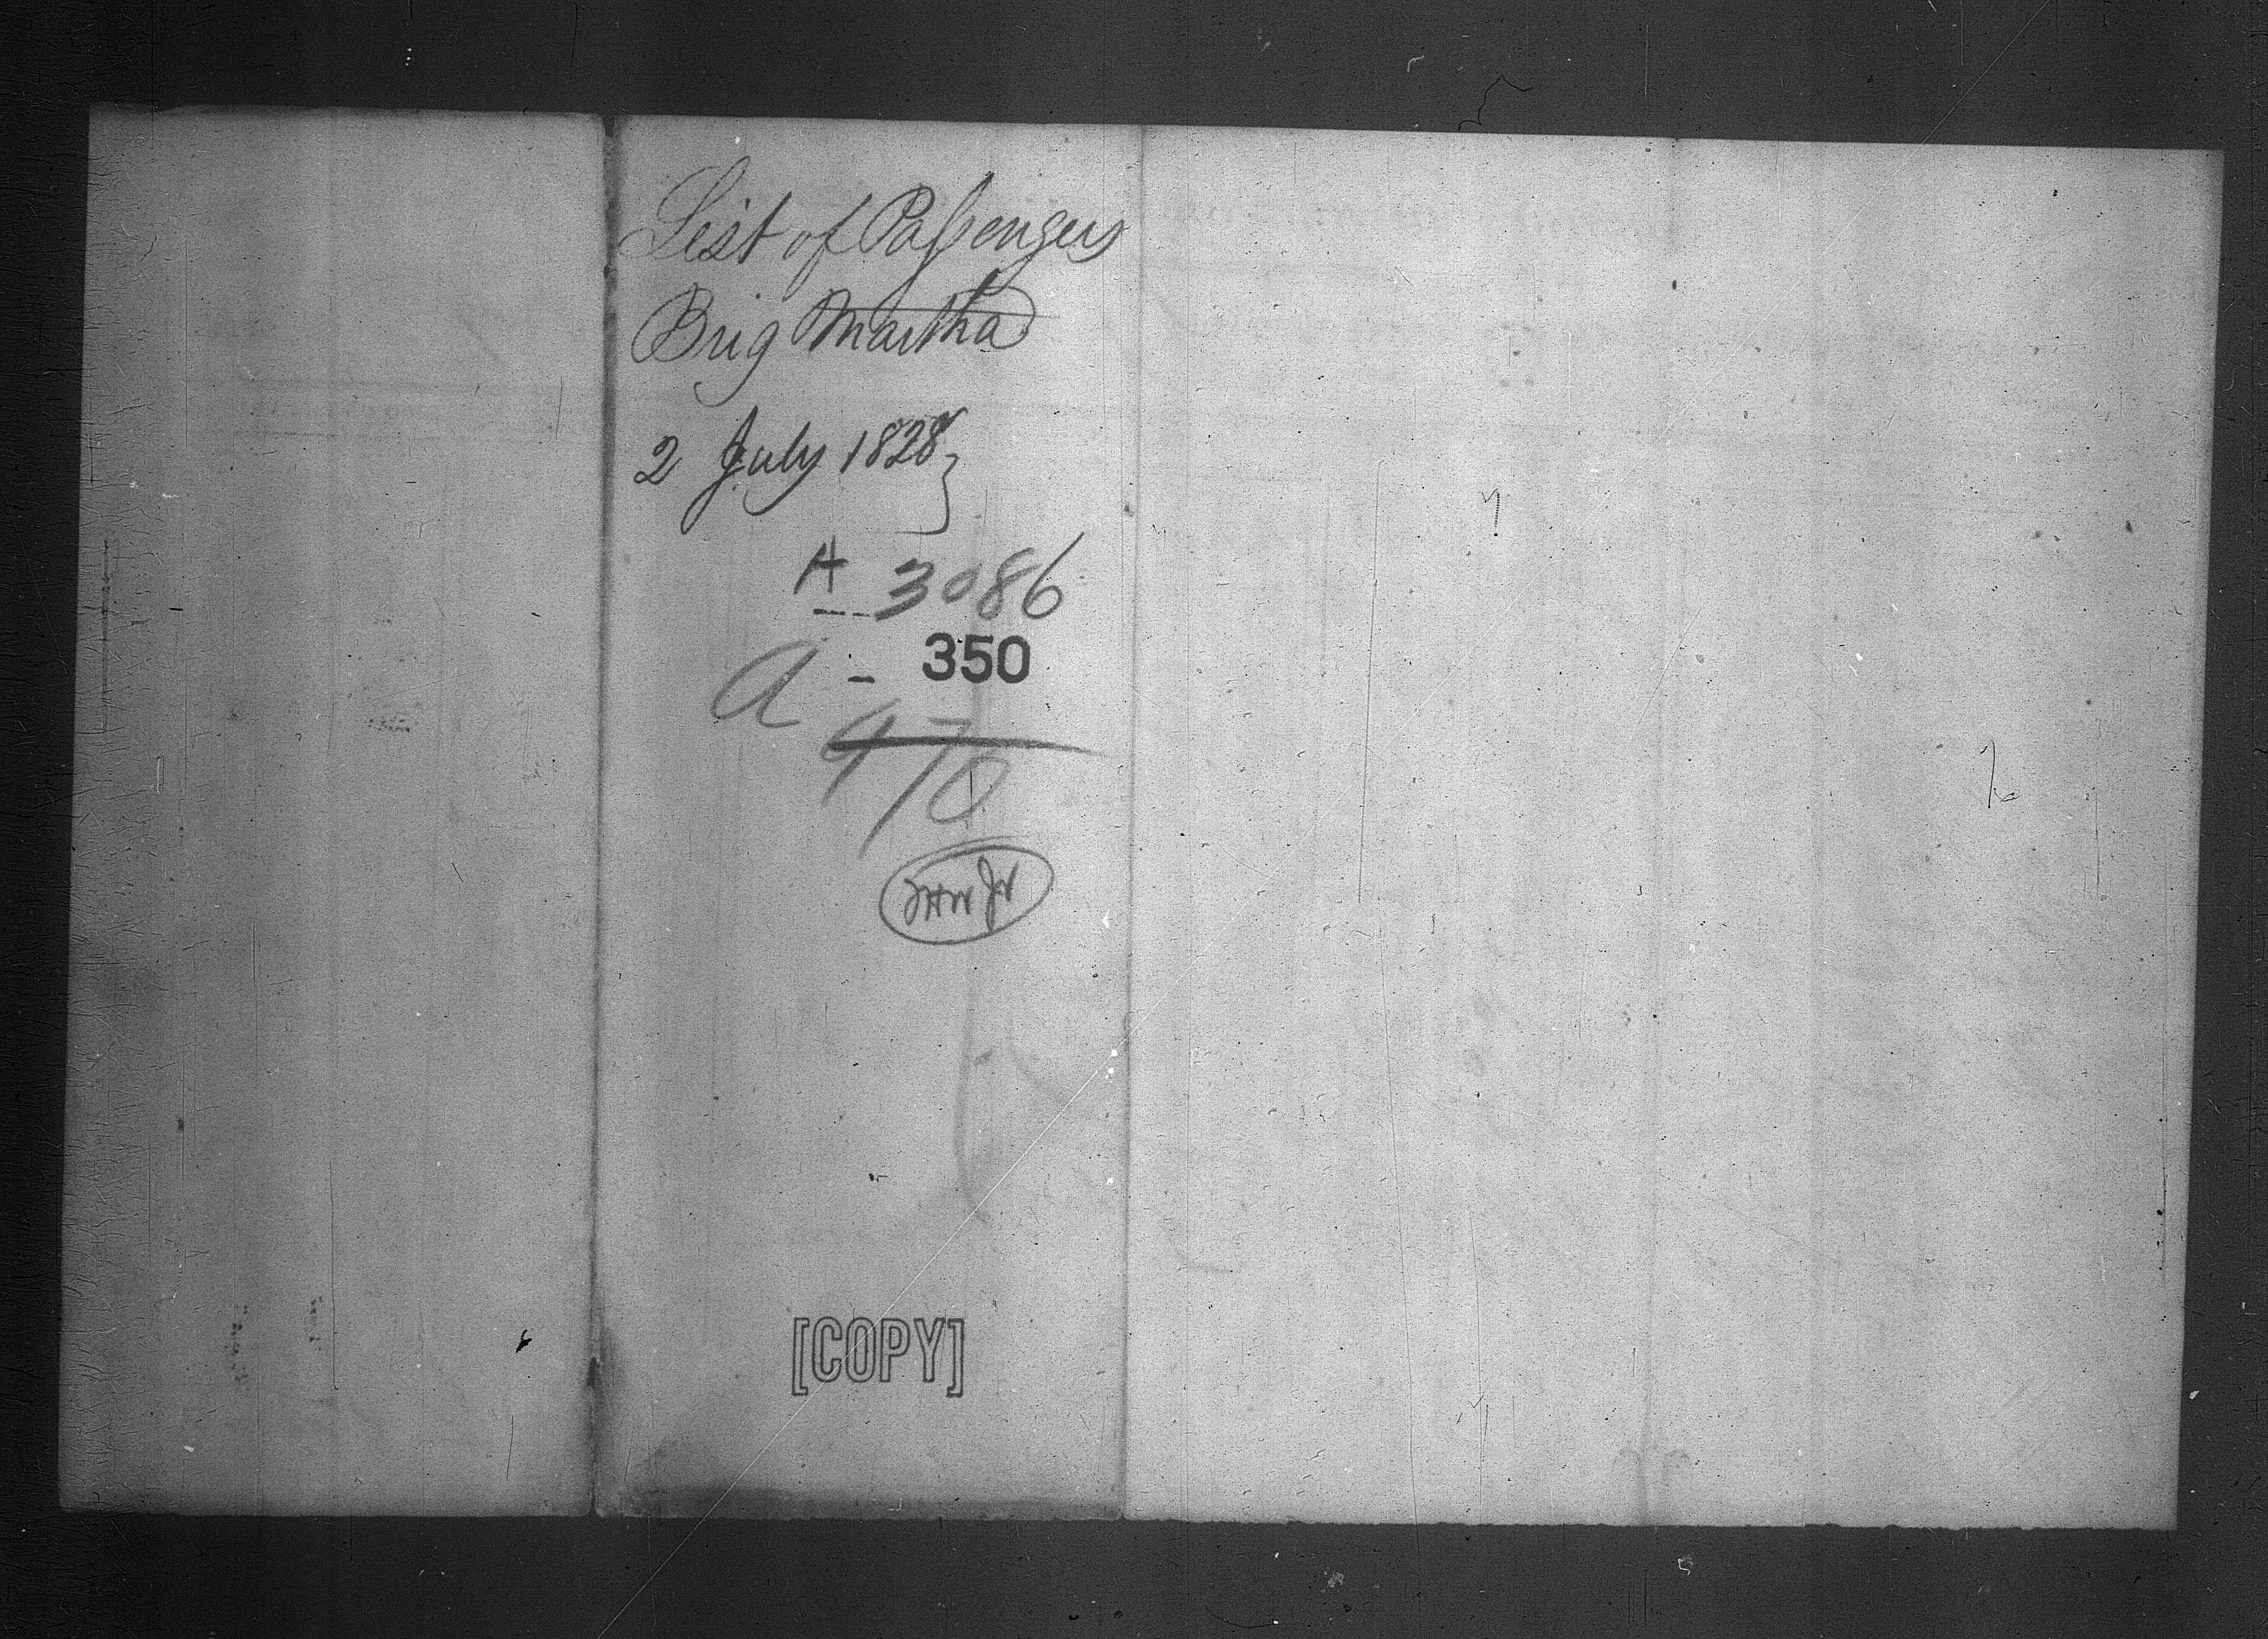 List of Passengers
Brig Martha
2 July 1828
A 3086
a - 350
470
[COPY]